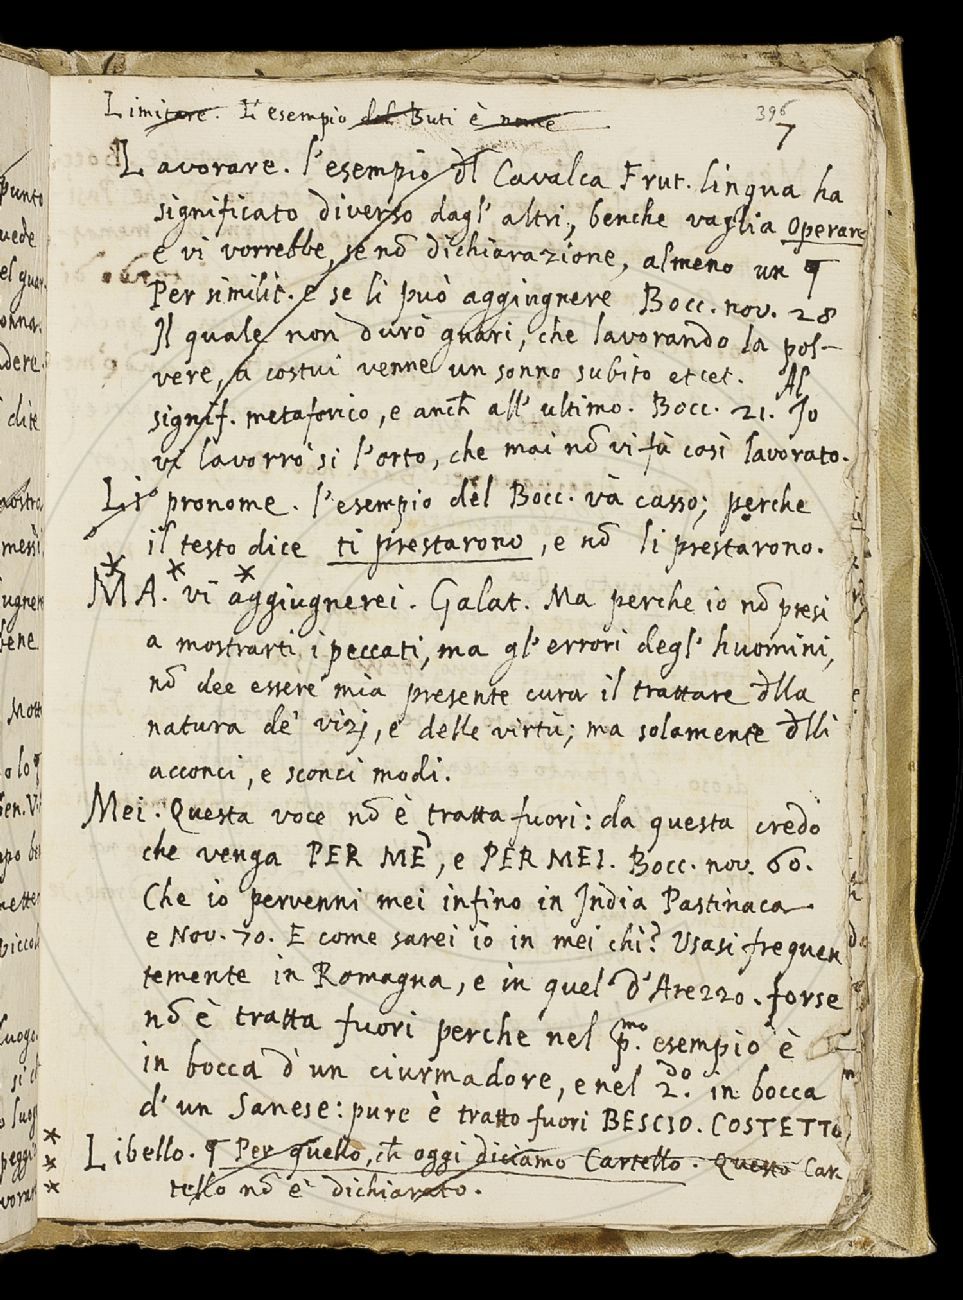 Limitare. L'esempio del Buti è nome
396
7
Lavorare. l'esempio dl Cavalca Frut. lingua ha
significato diverso dagl' altri, benche vaglia Operare
e vi vorrebbe, se nõ dichiarazione, almeno un ¶
Per similit. e se li può aggiugnere Bocc. nov. 28
Il quale non durò guari, che lavorando la pol-
vere, a costui venne un sonno subito et cet. Al
signif. metaforico, e anch̃ all' ultimo. Bocc. 21. Io
vi lavorrò si l'orto, che mai nõ vi fù così lavorato.
Li pronome. l'esempio del Bocc. và casso; perche
il testo dice ti prestarono, e nõ li prestarono.
* * *
MA. vi aggiugnerei. Galat. Ma perche io nõ presi
a mostrarti i peccati, ma gl' errori degl' huomini,
nõ dee essere mia presente cura il trattare dlla
natura de' vizj, e delle virtù; ma solamente dlli
acconci, e sconci modi.
Mei. Questa voce nõ è tratta fuori: da questa credo
che venga PER ME, e PER MEI. Bocc. nov. 60.
Che io pervenni mei infino in India Pastinaca
e Nov. 70. E come sarei io in mei chi? Usasi frequen
temente in Romagna, e in quel d'Arezzo. forse
nõ è tratta fuori perche nel p.mo esempio è
in bocca d'un ciurmadore, e nel 2.do in bocca
d'un Sanese: pure è tratto fuori BESCIO. COSTETTO
* * *
Libello. ¶ Per quello, ch̃ oggi diciamo Cartello. Questo Car
tello nõ è dichiarato.